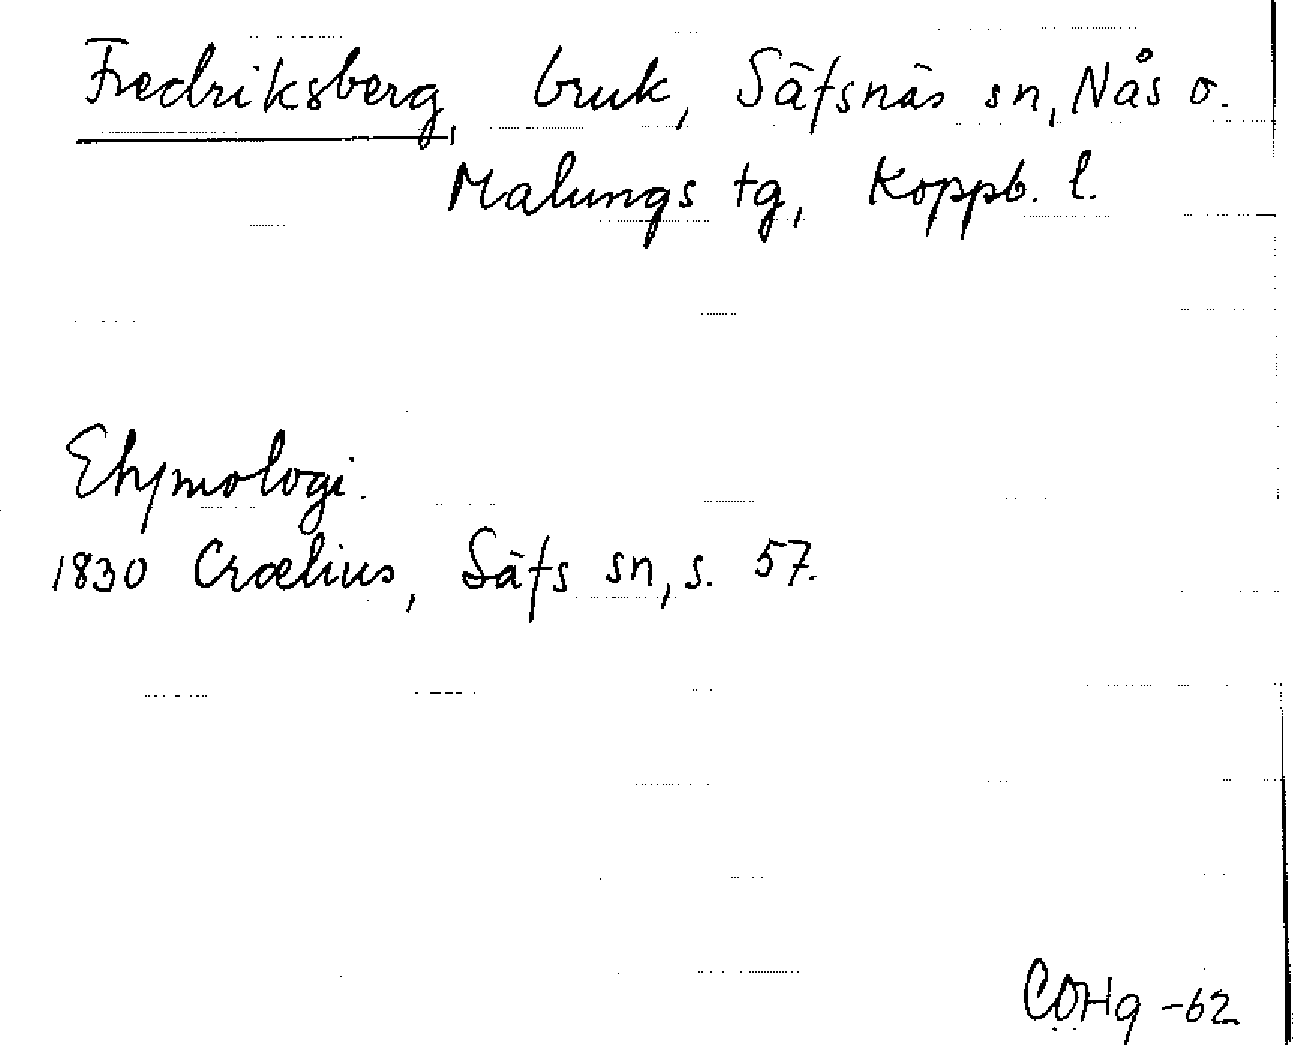 Fredriksberg, bruk, Säfsnäs sn, Nås o.
Malungs tg, Koppb. l.
Etymologi.
1830 Crælius, Säfs sn, s. 57.
COHq -62